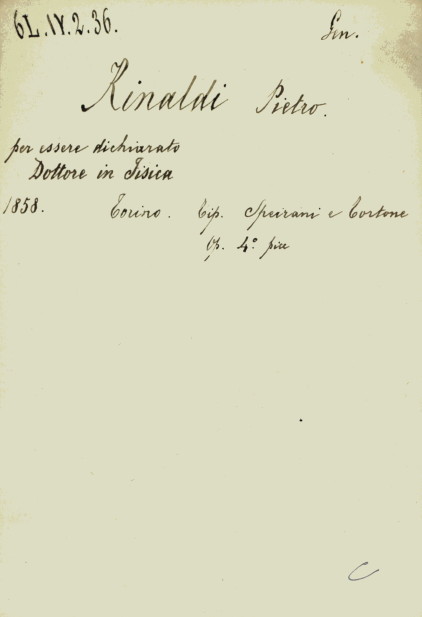 6L.IV.2.36. Gen.
Rinaldi Pietro.
per essere dichiarato
Dottore in Fisica
1858. Torino. Tip. Speirani e Tortone
Op. 4.º picc
C